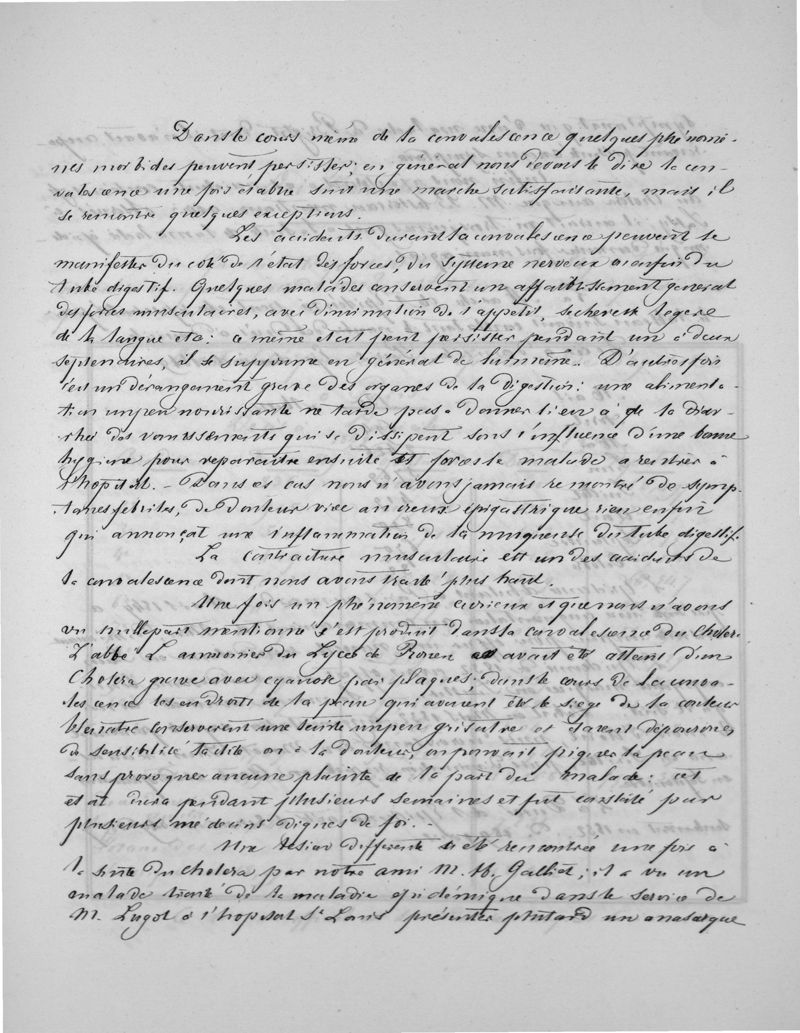 Dans le cours même de la convalescence quelques phénomè-
nes morbides peuvent persister; en général nous devons le dire la con-
valescence une fois établie suit une marche satisfaisante, mais il
se rencontre quelques exceptions.
Les accidents durant la convalescence peuvent se
manifester du coté de l'état des forces, du système nerveux ou enfin du
tube digestif. Quelques malades conservent un affaiblissement général
des forces musculaires, avec diminution de l'appétit, sécheresse légère
de la langue etc: ce même état peut persister pendant un ou deux
septenaires, il se supprime en général de lui même. D'autres fois
c'est un dérangement grave des organes de la digestion: une alimenta-
tion un peu nourrissante ne tarde pas a donner lieu à de la diar-
rhée des vomissements qui se dissipent sous l'influence d'une bonne
hygiene pour reparaitre ensuite et forcer le malade a rentrer à
l'hopital. - Dans ces cas nous n'avons jamais rencontré de symp-
tomes febriles, de douleur vive au creux épigastrique rien enfin
qui annonçat une inflammation de la muqueuse du tube digestif.
La contracture musculaire est un des accidents de
la convalescence dont nous avons traité plus haut.
Une fois un phénomène curieux et que nous n'avons
vu nulle part mentionné s'est produit dans la convalescence du choléra
L'abbé L. aumonier du Lycée de Rouen avait été atteint d'un
Cholera grave avec cyanose par plaques: dans le cours de la conva-
lescence les endroits de la peau qui avaient été le siége de la couleur
bleuatre conserverent une teinte un peu grisatre et étaient dépourvus
de sensibilité tactile ou à la douleur, on pouvait piquer la peau
sans provoquer aucune plainte de la part du malade: cet
état dura pendant plusieurs semaines et fut constaté par
plusieurs médecins dignes de foi. -
Une lésion differente a été rencontrée une fois à
la suite du cholera par notre ami M. H. Galliet; il a vu un
malade traité de la maladie épidémique dans le service de
M. Lugol à l'hopital St Louis présenter plutard un anasarque